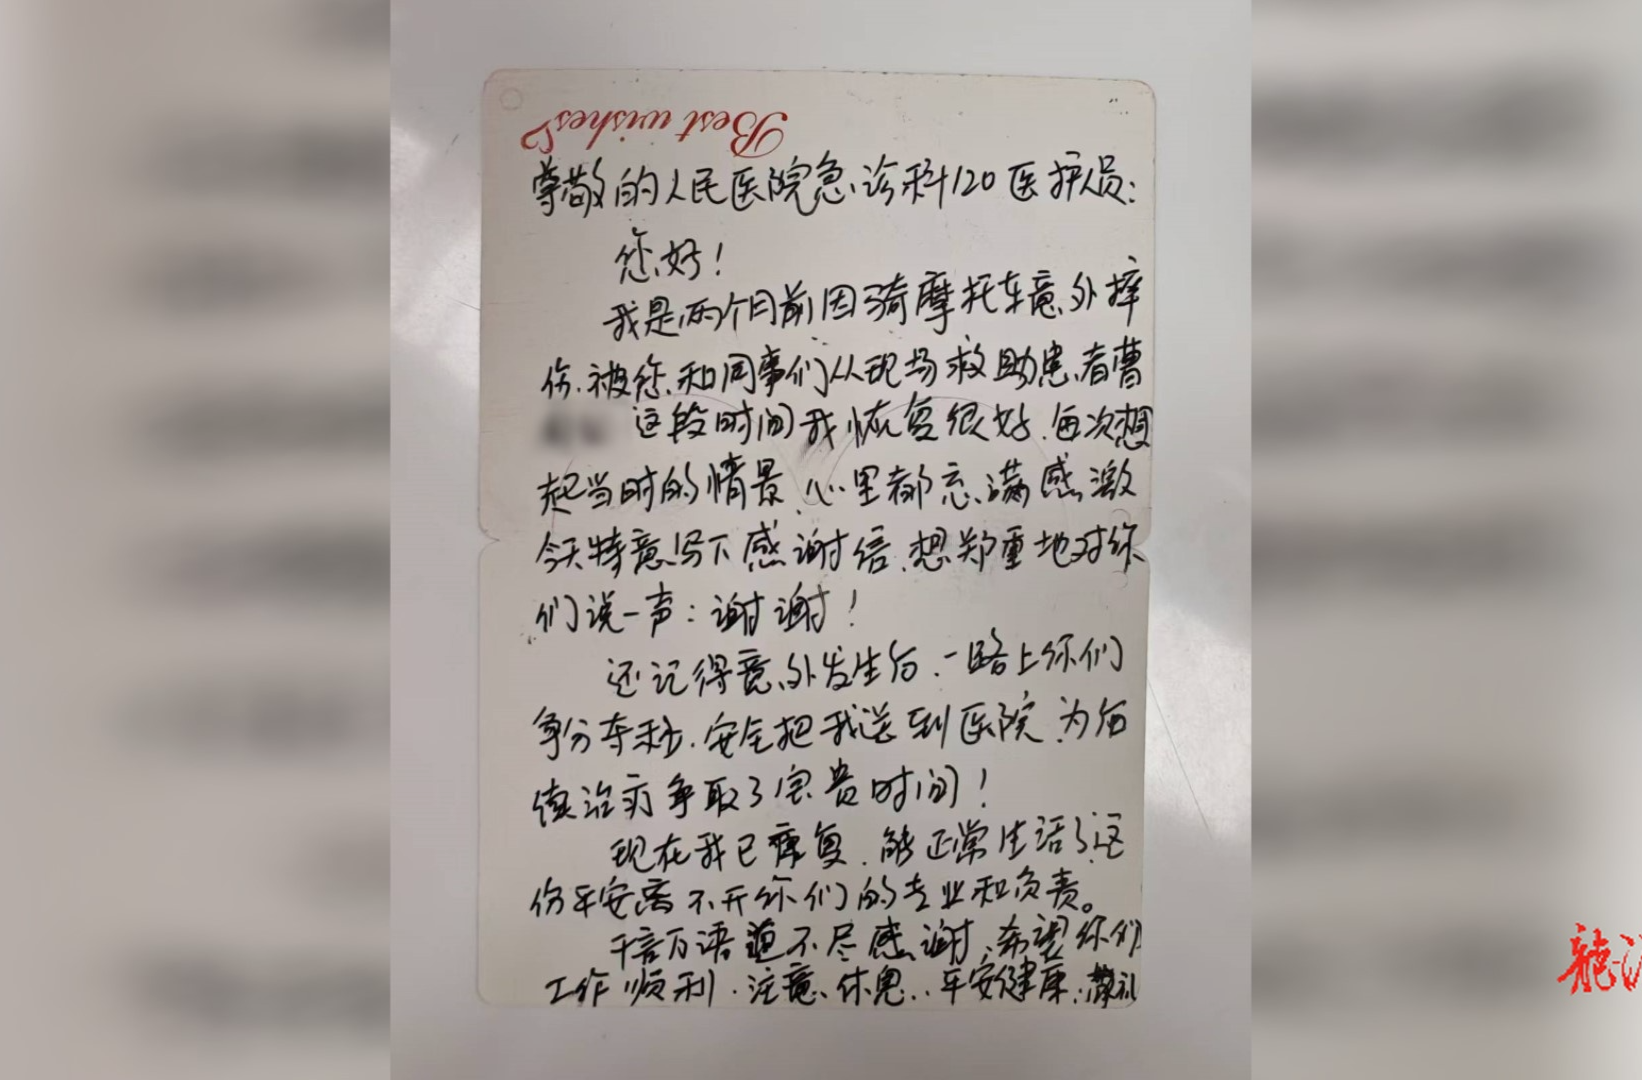 Best wishes
尊敬的人民医院急诊科120医护人员:
您好!
我是两个月前因骑摩托车意外摔
伤.被您和同事们从现场救助患者曹
这段时间我恢复很好.每次想
起当时的情景.心里都充满感激
今天特意写下感谢信.想郑重地对你
们说一声:谢谢!
还记得意外发生后.一路上你们
争分夺秒.安全把我送到医院.为后
续治疗争取了宝贵时间!
现在我已康复.能正常生活了.这
份平安离不开你们的专业和负责。
千言万语道不尽感谢,希望你们
工作顺利.注意休息..平安健康.
龍